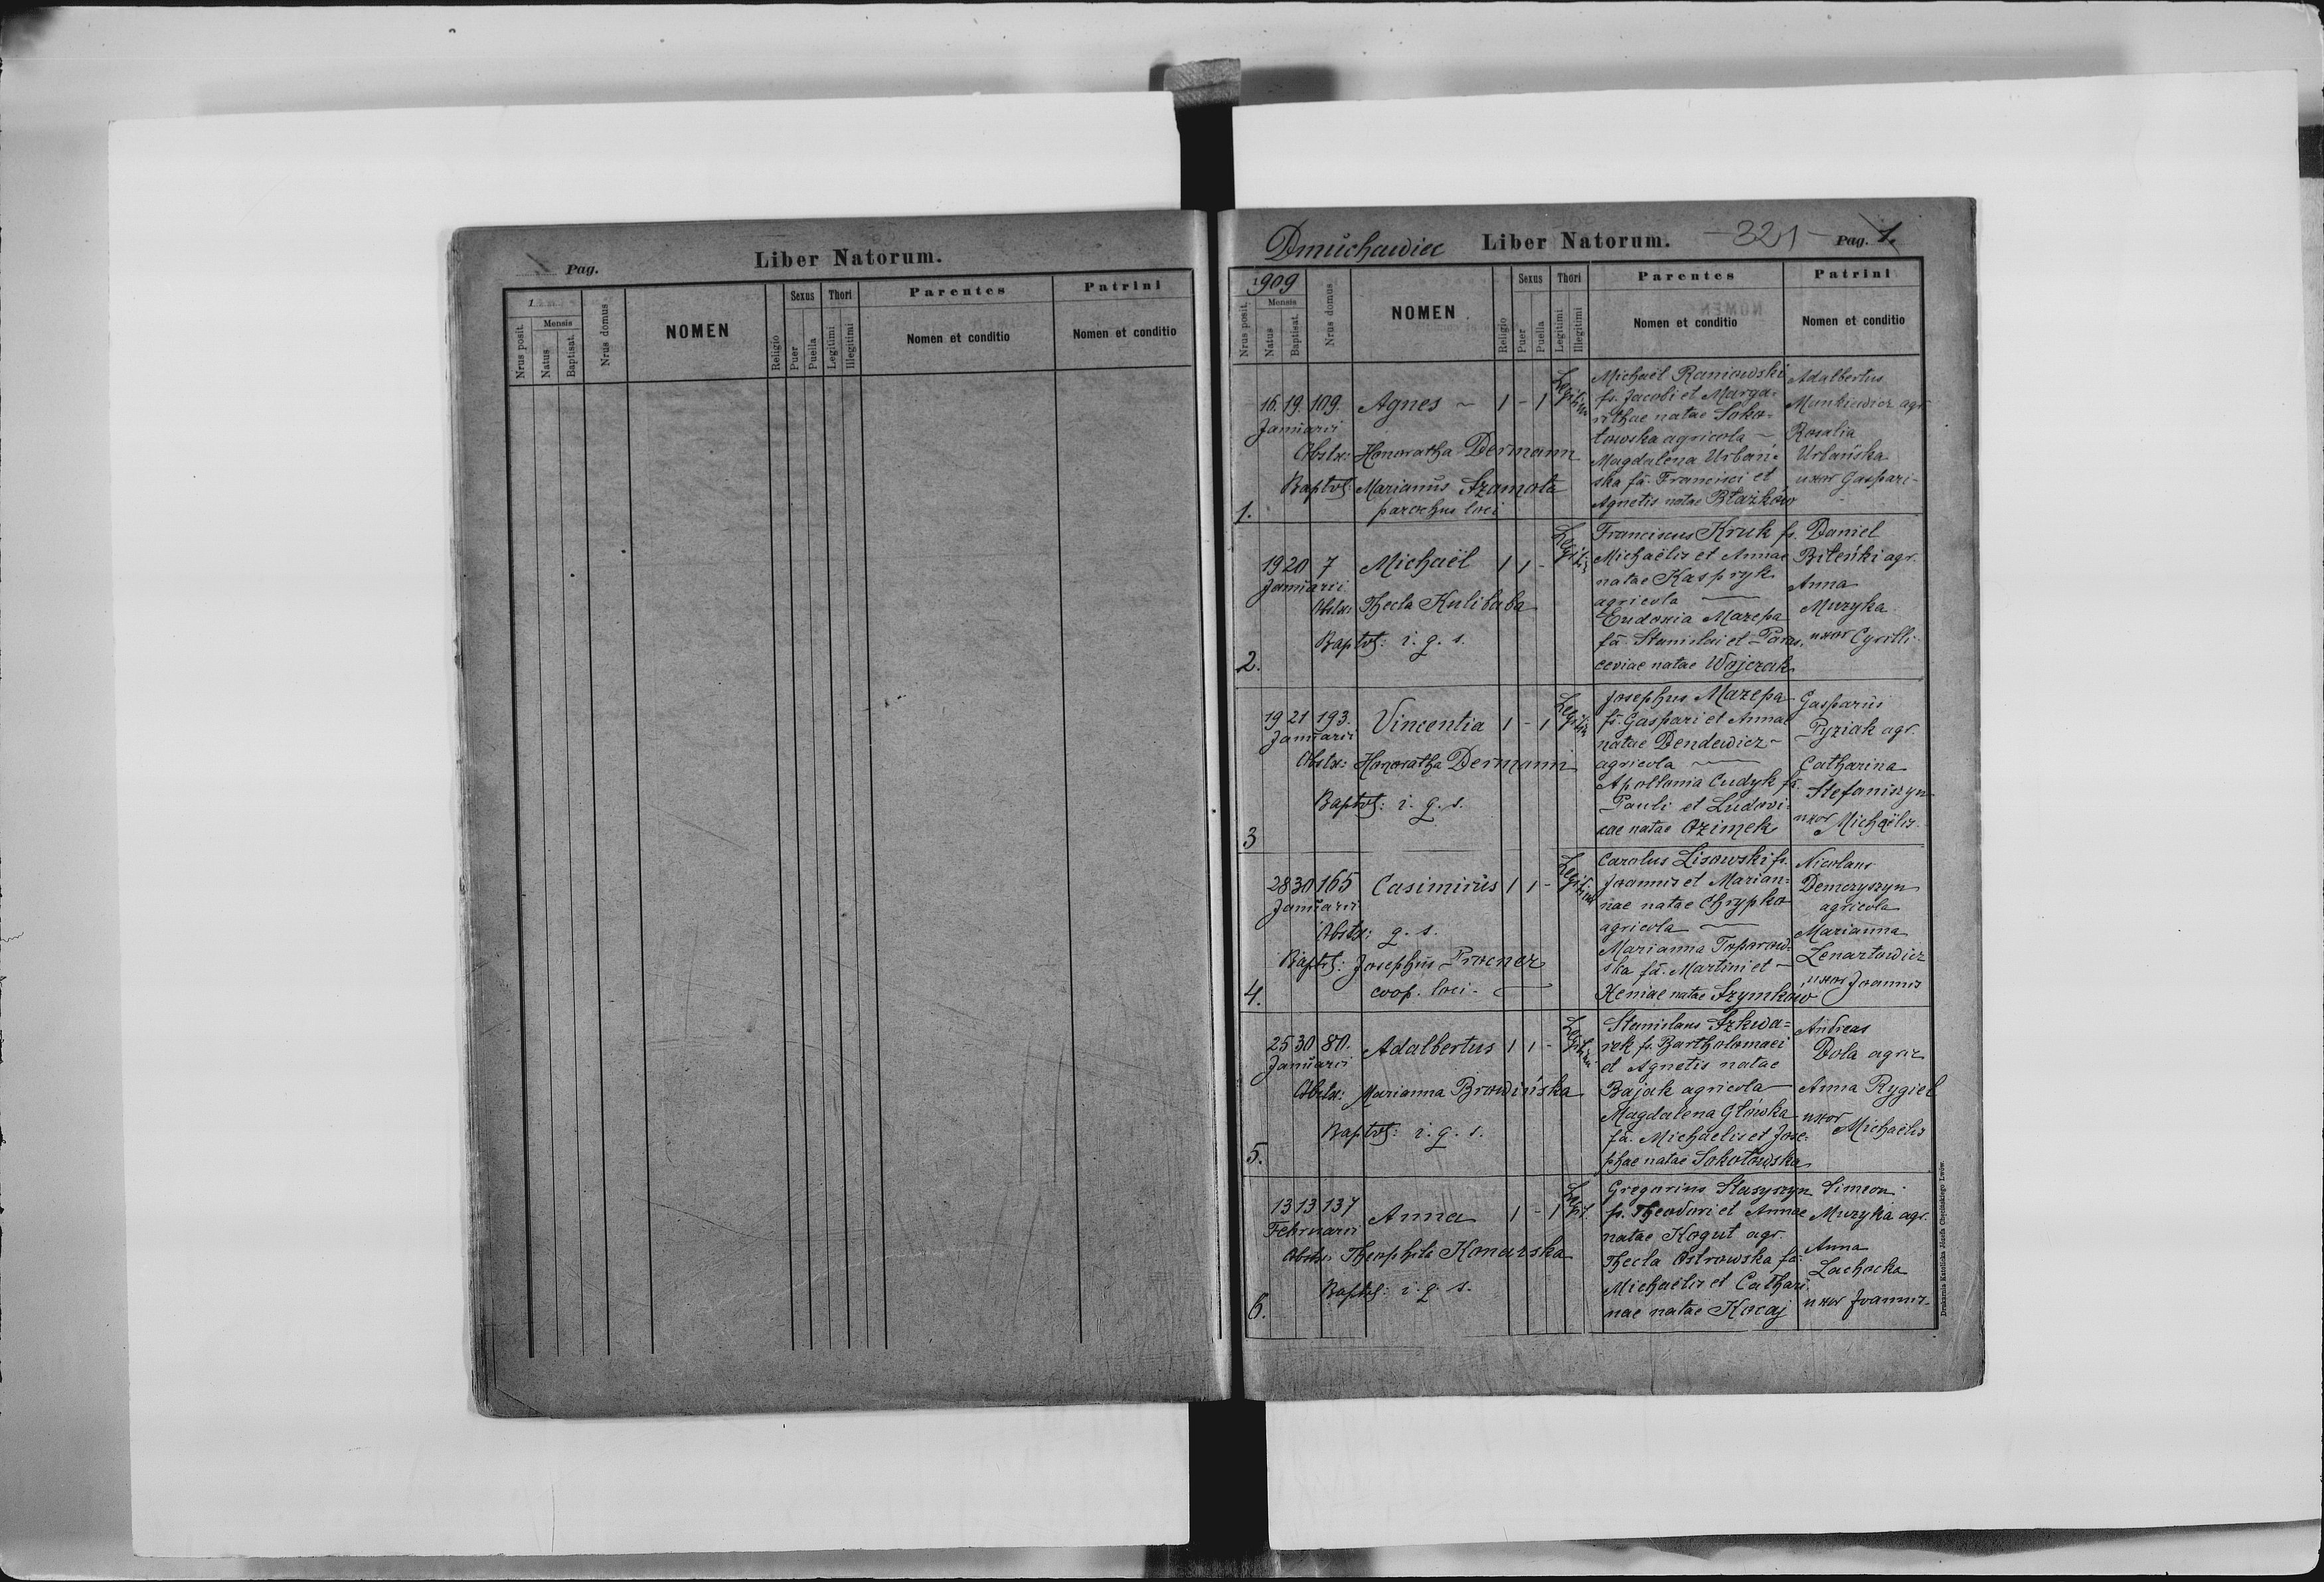 Pag.
Liber Natorum.
1
Nrus posit.
Mensis
Natus
Baptisat.
Nrus domus
NOMEN
Religio
Sexus
Puer
Puella
Thori
Legitimi
Illegitimi
Parentes
Nomen et conditio
Patrini
Nomen et conditio
Dmuchawiec Liber Natorum. -321- Pag. 1.
1909
Nrus posit.
Mensis
Natus
Baptisat.
Nrus domus
NOMEN
Religio
Sexus
Puer
Puella
Thori
Legitimi
Illegitimi
Parentes
Nomen et conditio
Patrini
Nomen et conditio
1.
16. 19. 109. Agnes ~ 1 - 1
Januarii
Obstx: Honoratha Dermann
Baptvt: Marianus Szamota
parochus loci
Michaël Raniowski
fs. Jacobi et Marga-
rithae natae Soko-
łowska agricola ~
Magdalena Urbań-
ska fa. Francisci et
Agnetis natae Błażków
Adalbertus
Mankiewicz agr.
Rosalia
Urbańska
uxor Gaspari-
2.
19 20 7 Michaël 1 1 -
Januarii
Obstx: Thecla Kulibaba
Baptvt: i. q. s.
Franciscus Kruk fs.
Michaëlis et Annae
natae Kaspryk
agricola
Eudoxia Mazepa
fa Stanislai et Paras,
ceviae natae Wojczak
Daniel
Bileńki agr.
Anna
Muzyka
uxor Cyrilli
3
19 21 193. Vincentia 1 - 1
Januarii
Obstx: Honoratha Dermann
Baptvt: i. q. s.
Josephus Mazepa
fs. Gaspari et Annae
natae Dendewicz -
agricola
Apollonia Cudyk fa.
Pauli et Ludovi-
cae natae Ozimek
Gasparus
Pyziak agr.
Catharina
Stefaniszyn
uxor Michaëlis
4.
28 30 165 Casimirus 1 1 -
Januarii
Obstx: q. s.
Baptvt: Josephus Procner
coop. loci -
Carolus Lisowski fs.
Joannis et Marian=
nae natae Chrypko
agricola
Marianna Toporow=
ska fa. Martini et -
Xeniae natae Szymków
Nicolaus
Demczyszyn
agricola
Marianna
Lenartowicz
uxor Joannis
5.
25 30 80. Adalbertus 1 1 -
Januarii
Obstx: Marianna Browińska
Baptvt: i. q. s.
Stanislaus Szkwa=
rek fs. Bartholomaei
et Agnetis natae
Bajak agricola
Magdalena Głowska
fa. Michaelis et Jose-
phae natae Sokołowska
Andreas
Dola agric
Anna Rygiel
uxor
Michaëlis
6.
13 13 137 Anna 1 - 1
Februarii
Obstx: Theophila Konarska
Baptvt: i. q. s.
Gregorius Stasyszyn
fs. Theodori et Annae
natae Kogut agr.
Thecla Ostrowska fa.
Michaelis et Cathari
nae natae Kocaj
Simeon
Muzyka agr.
Anna
Lachocka
uxor Joannis.
Drukarnia Katolicka Józefa Chęcińskiego Lwów.